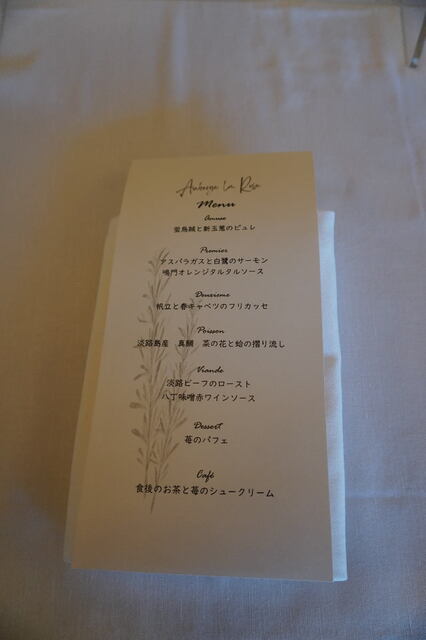 Auberge La Rose
Menu
Amuse
蛍烏賊と新玉葱のピュレ
Premier
アスパラガスと白鷺のサーモン
鳴門オレンジタルタルソース
Deuxieme
帆立と春キャベツのフリカッセ
Poisson
淡路島産 真鯛 菜の花と蛤の摺り流し
Viande
淡路ビーフのロースト
八丁味噌赤ワインソース
Dessert
苺のパフェ
Café
食後のお茶と苺のシュークリーム